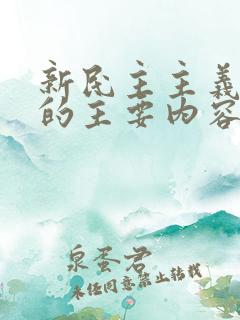 新民主主义
的主要内容
泉蛋君
未经同意禁止转载